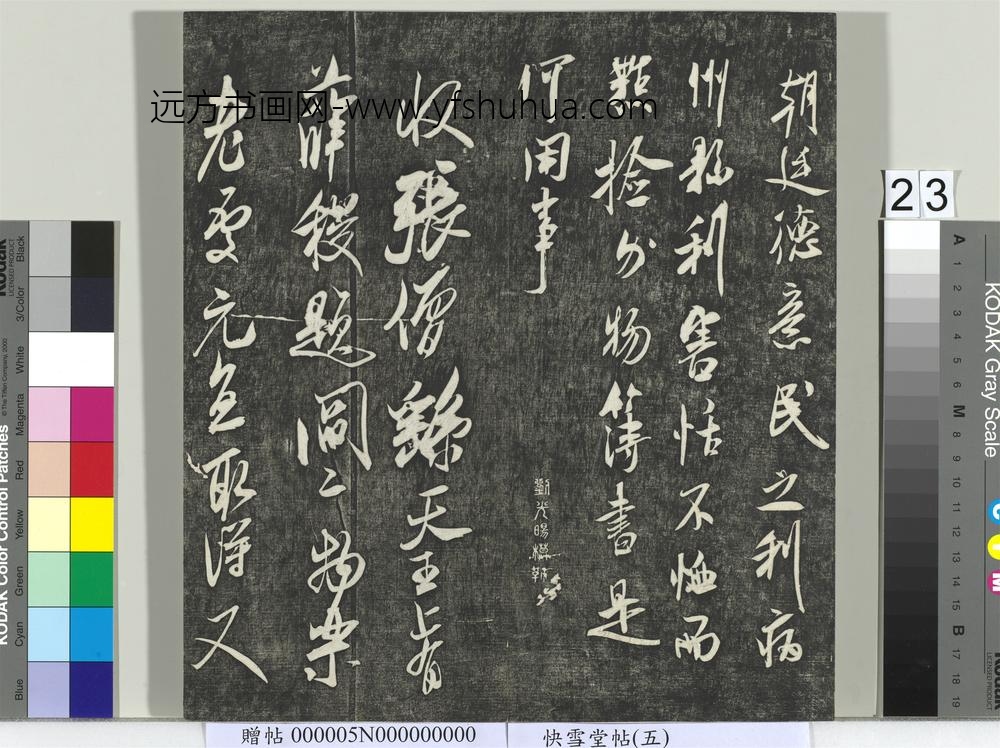 朝廷德意民之利病
州縣利害恬不恤而
點撿分物簿書是
何用事
劉光暘模勒
收張僧繇天王上有
薛稷題閻二物樂
老處元直取得又
远方书画网-www.yfshuhua.com
23
KODAK Gray Scale
A 1 2 3 4 5 6 M 8 9 10 11 12 13 14 15 B 17 18 19
C Y M
KODAK Color Control Patches
© The Tiffen Company, 2000
Kodak
LICENSED PRODUCT
Blue Cyan Green Yellow Red Magenta White 3/Color Black
贈帖 000005N000000000
快雪堂帖(五)